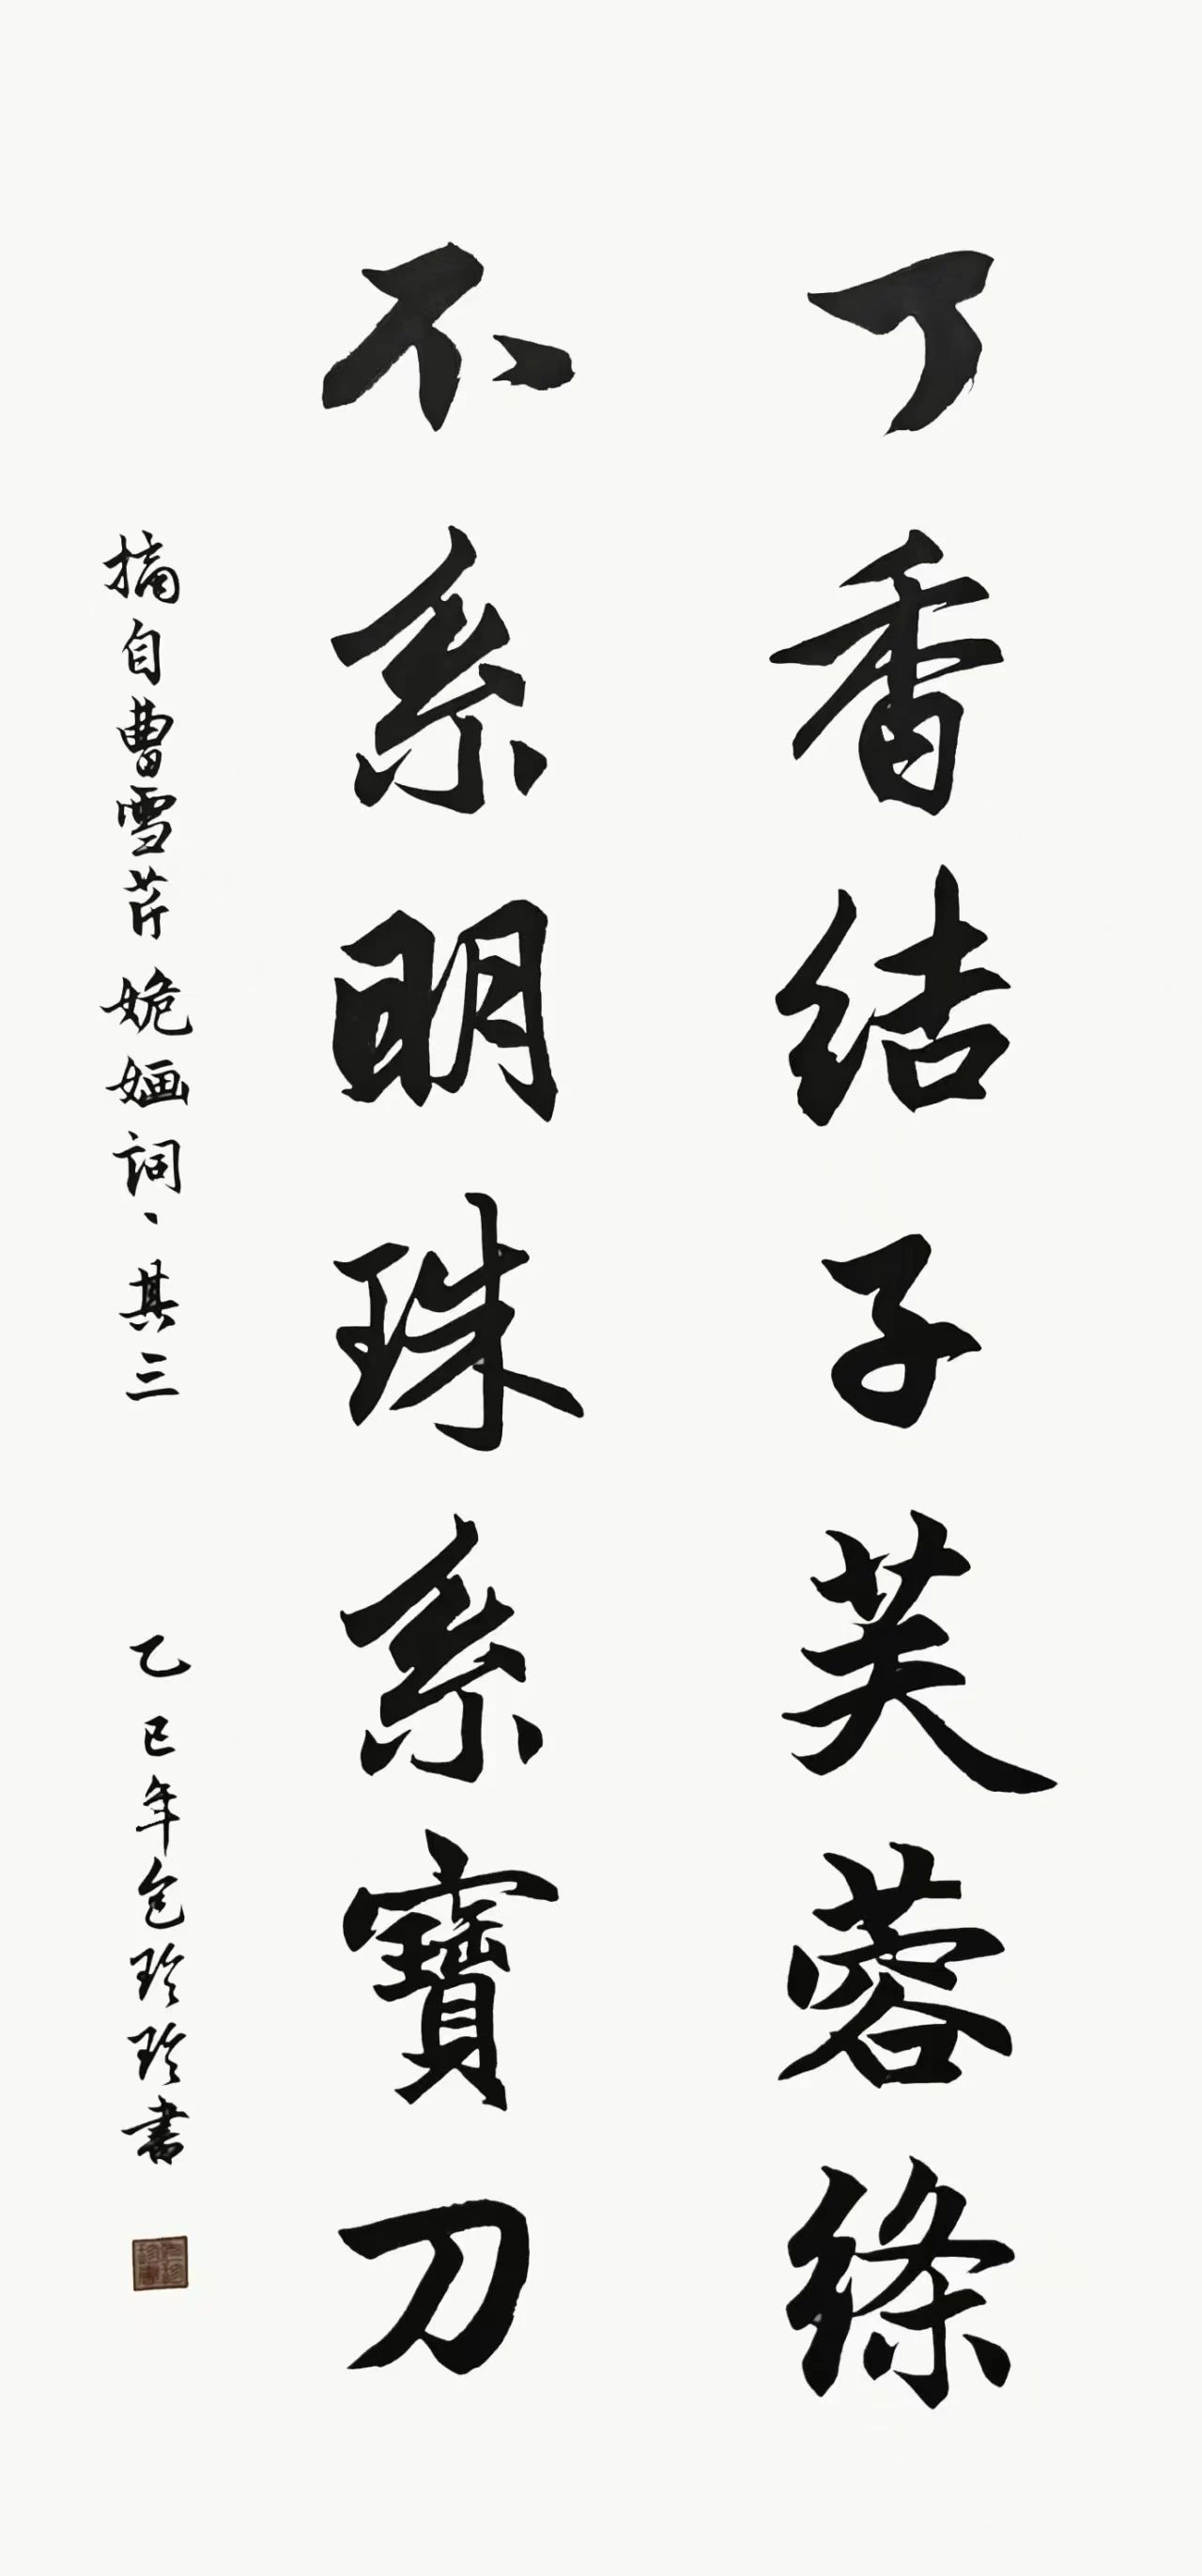 丁香结子芙蓉绦
不系明珠系寶刀
摘自曹雪芹姽婳词、其三 乙巳年包珍珍书